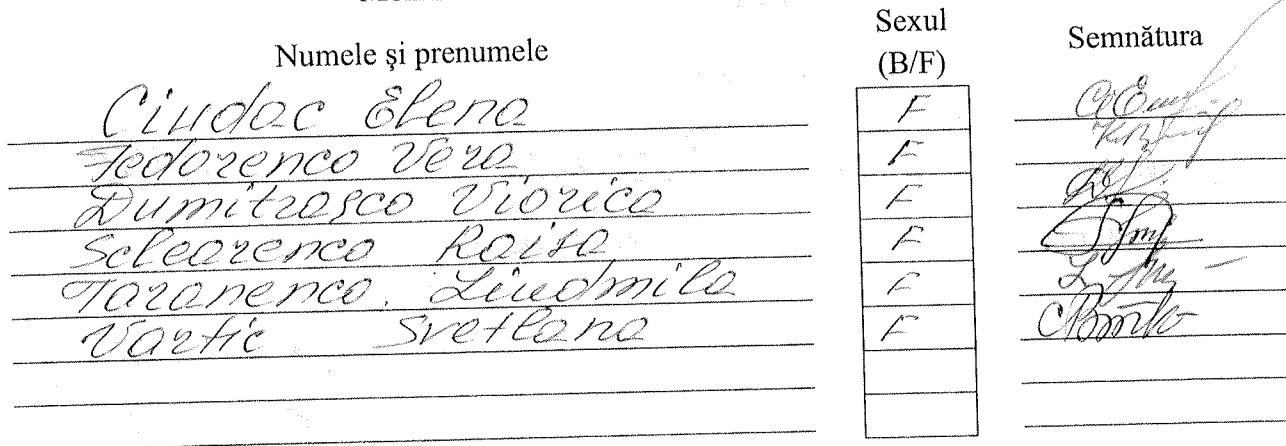 Numele şi prenumele Sexul (B/F) Semnătura
Ciudac Elena F
Fedorenco Vera F
Dumitrașco Viorica F
Sclearenco Raisa F
Taranenco. Liudmila F
Vartic Svetlana F